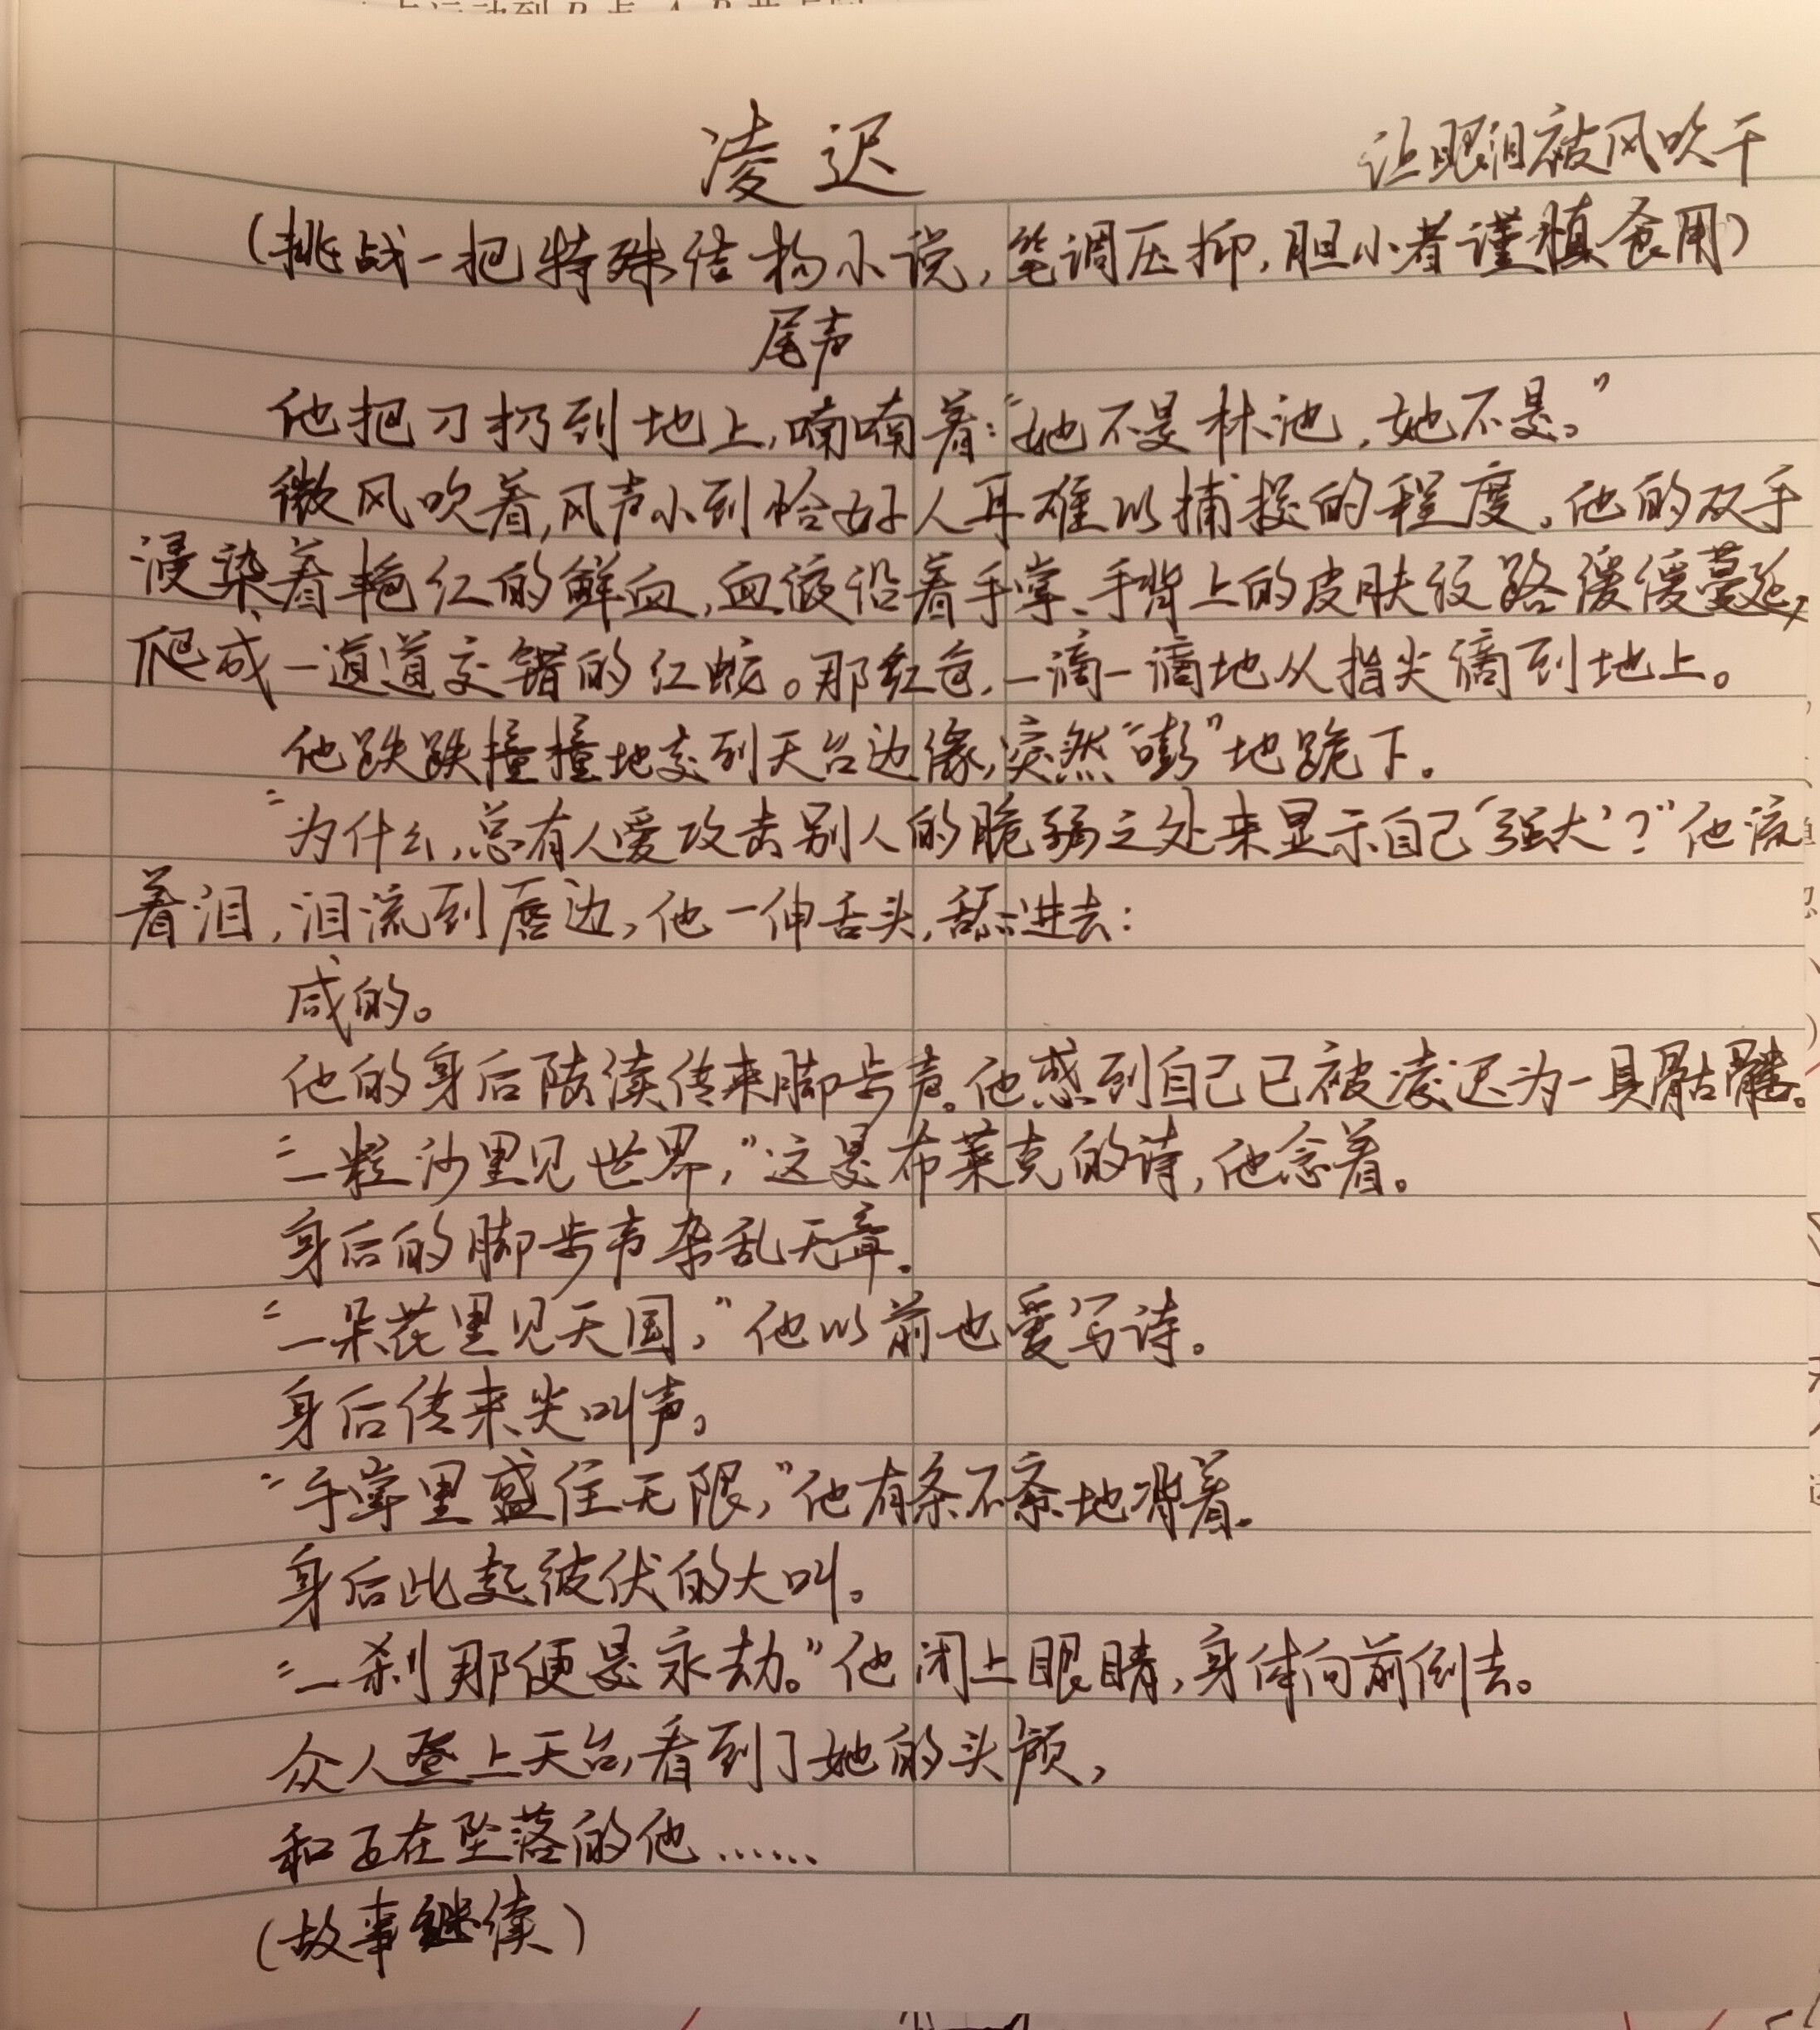 凌迟
让眼泪被风吹干
(挑战一把特殊结构小说,笔调压抑,胆小者谨慎食用)
尾声
他把刀扔到地上,喃喃着:“她不是林池,她不是。”
微风吹着,风声小到恰好人耳难以捕捉的程度。他的双手
浸染着艳红的鲜血,血液沿着手掌、手背上的皮肤纹路缓缓蔓延,
爬成一道道交错的红蛇。那红色,一滴一滴地从指尖滴到地上。
他跌跌撞撞地走到天台边缘,突然“嘭”地跪下。
“为什么,总有人爱攻击别人的脆弱之处来显示自己‘强大’?”他流
着泪,泪流到唇边,他一伸舌头,舔进去:
咸的。
他的身后陆续传来脚步声。他感到自己已被凌迟为一具骷髅。
“一粒沙里见世界,”这是布莱克的诗,他念着。
身后的脚步声杂乱无章。
“一朵花里见天国,”他以前也爱写诗。
身后传来尖叫声。
“手掌里盛住无限,”他有条不紊地背着。
身后此起彼伏的大叫。
“一刹那便是永劫。”他闭上眼睛,身体向前倒去。
众人登上天台,看到了她的头颅,
和正在坠落的他……
(故事继续)